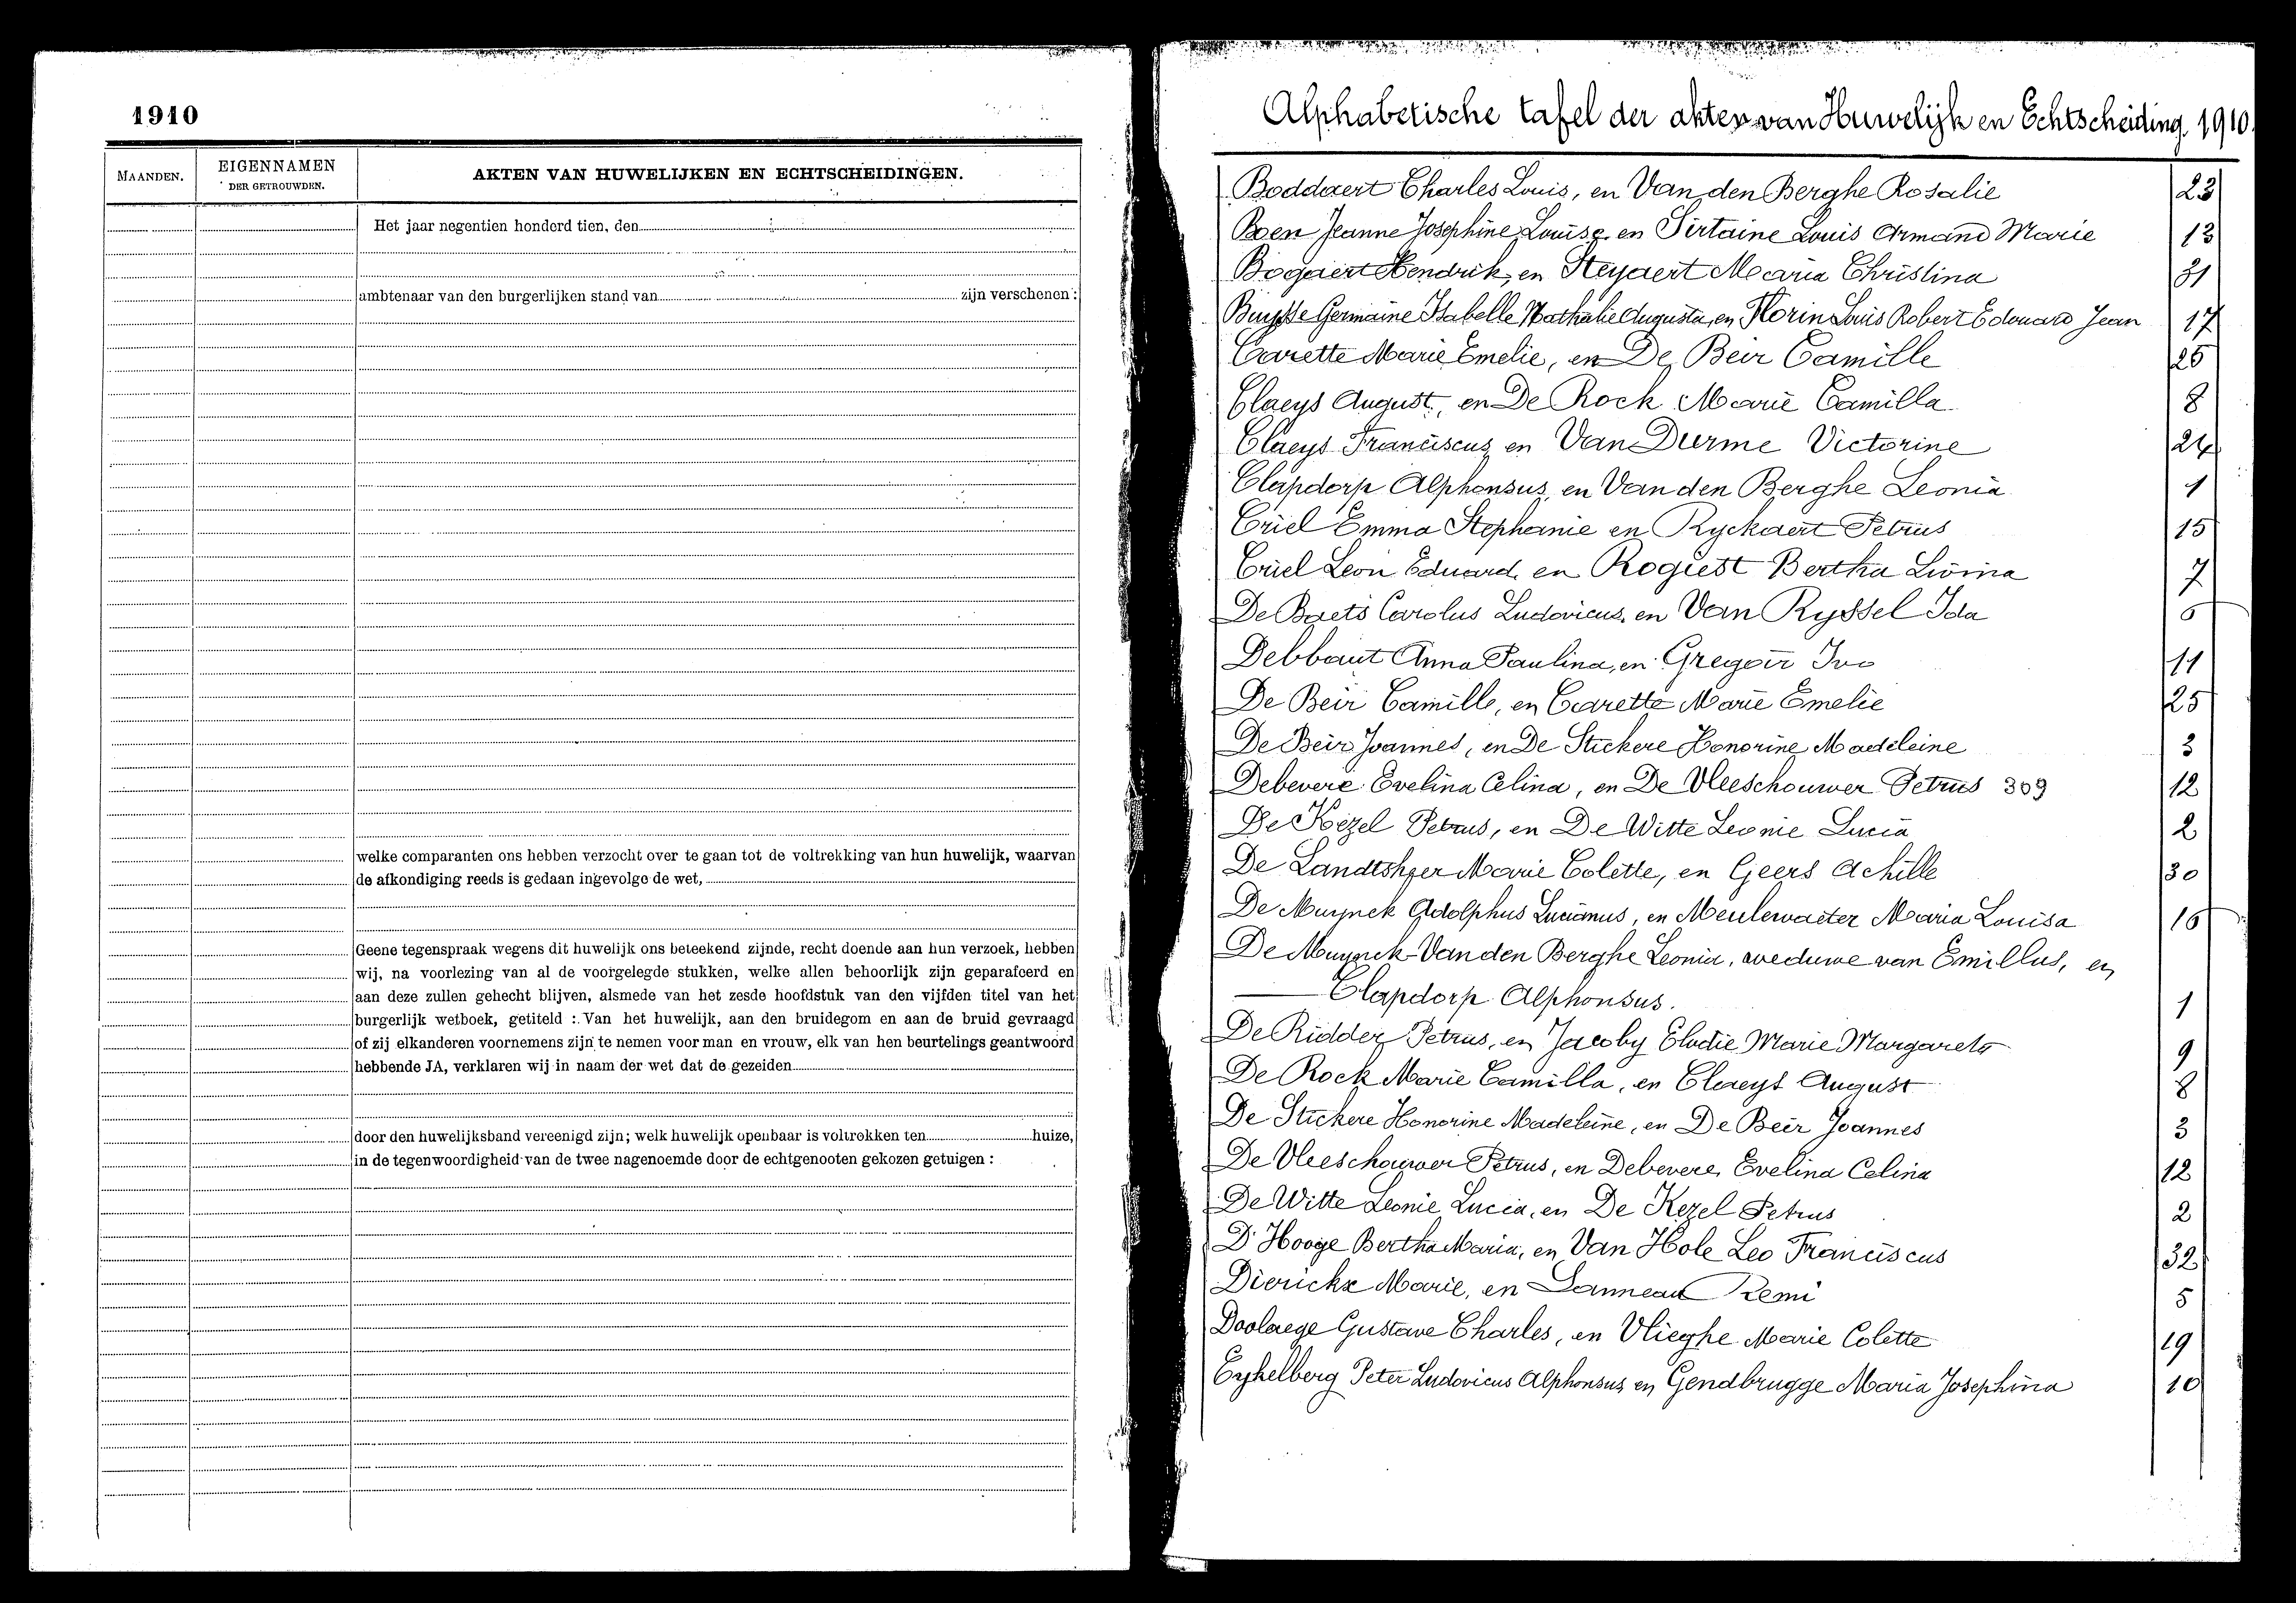 1910
MAANDEN.
EIGENNAMEN
DER GETROUWDEN.
AKTEN VAN HUWELIJKEN EN ECHTSCHEIDINGEN.
Het jaar negentien honderd tien, den
ambtenaar van den burgerlijken stand van zijn verschenen :
welke comparanten ons hebben verzocht over te gaan tot de voltrekking van hun huwelijk, waarvan
de afkondiging reeds is gedaan ingevolge de wet,
Geene tegenspraak wegens dit huwelijk ons beteekend zijnde, recht doende aan hun verzoek, hebben
wij, na voorlezing van al de voorgelegde stukken, welke allen behoorlijk zijn geparafeerd en
aan deze zullen gehecht blijven, alsmede van het zesde hoofdstuk van den vijfden titel van het
burgerlijk wetboek, getiteld : Van het huwelijk, aan den bruidegom en aan de bruid gevraagd
of zij elkanderen voornemens zijn te nemen voor man en vrouw, elk van hen beurtelings geantwoord
hebbende JA, verklaren wij in naam der wet dat de gezeiden
door den huwelijksband vereenigd zijn; welk huwelijk openbaar is voltrokken ten huize,
in de tegenwoordigheid van de twee nagenoemde door de echtgenooten gekozen getuigen :
Alphabetische tafel der akten van Huwelijk en Echtscheiding 1910.
Boddaert Charles Louis, en Van den Berghe Rosalie 23
Boen Jeanne Josephine Louise, en Sirtaine Louis Armand Marie 13
Bogaert Hendrik, en Steyaert Maria Christina 31
Buysse Germaine Isabelle Nathalie Augusta, en Florin Louis Robert Edouard Jean 17
Carette Marie Emelie, en De Beir Camille 25
Claeys August, en De Rock Marie Camilla 8
Claeys Franciscus, en Van Durme Victorine 24
Clapdorp Alphonsus, en Van den Berghe Leonia 1
Criel Emma Stephanie en Ryckaert Petrus 15
Criel Leon Eduard, en Rogiest Bertha Livina 7
De Baets Carolus Ludovicus, en Van Ryssel Ida 6
Debbaut Anna Paulina, en Gregoir Ivo 11
De Beir Camille, en Carette Marie Emelie 25
De Beir Joannes, en De Stickere Honorine Madeleine 3
Debevere Evelina Celina, en De Vleeschouwer Petrus 309 12
De Kezel Petrus, en De Witte Leonie Lucia 2
De Landtsheer Marie Colette, en Geers Achille 30
De Muynck Adolphus Lucianus, en Meulewaeter Maria Louisa 16
De Muynck-Van den Berghe Leonia, weduwe van Emillus, en
Clapdorp Alphonsus. 1
De Ridder Petrus, en Jacoby Elodie Marie Margareta 9
De Rock Marie Camilla, en Claeys August 8
De Stickere Honorine Madeleine, en De Beir Joannes 3
De Vleeschouwer Petrus, en Debevere Evelina Celina 12
De Witte Leonie Lucia, en De Kezel Petrus 2
D'Hooge Bertha Maria, en Van Hole Leo Franciscus 32
Dierickx Marie, en Lanneau Remi 5
Doolaege Gustave Charles, en Vlieghe Marie Colette 19
Eykelberg Peter Ludovicus Alphonsus, en Gendbrugge Maria Josephina 10